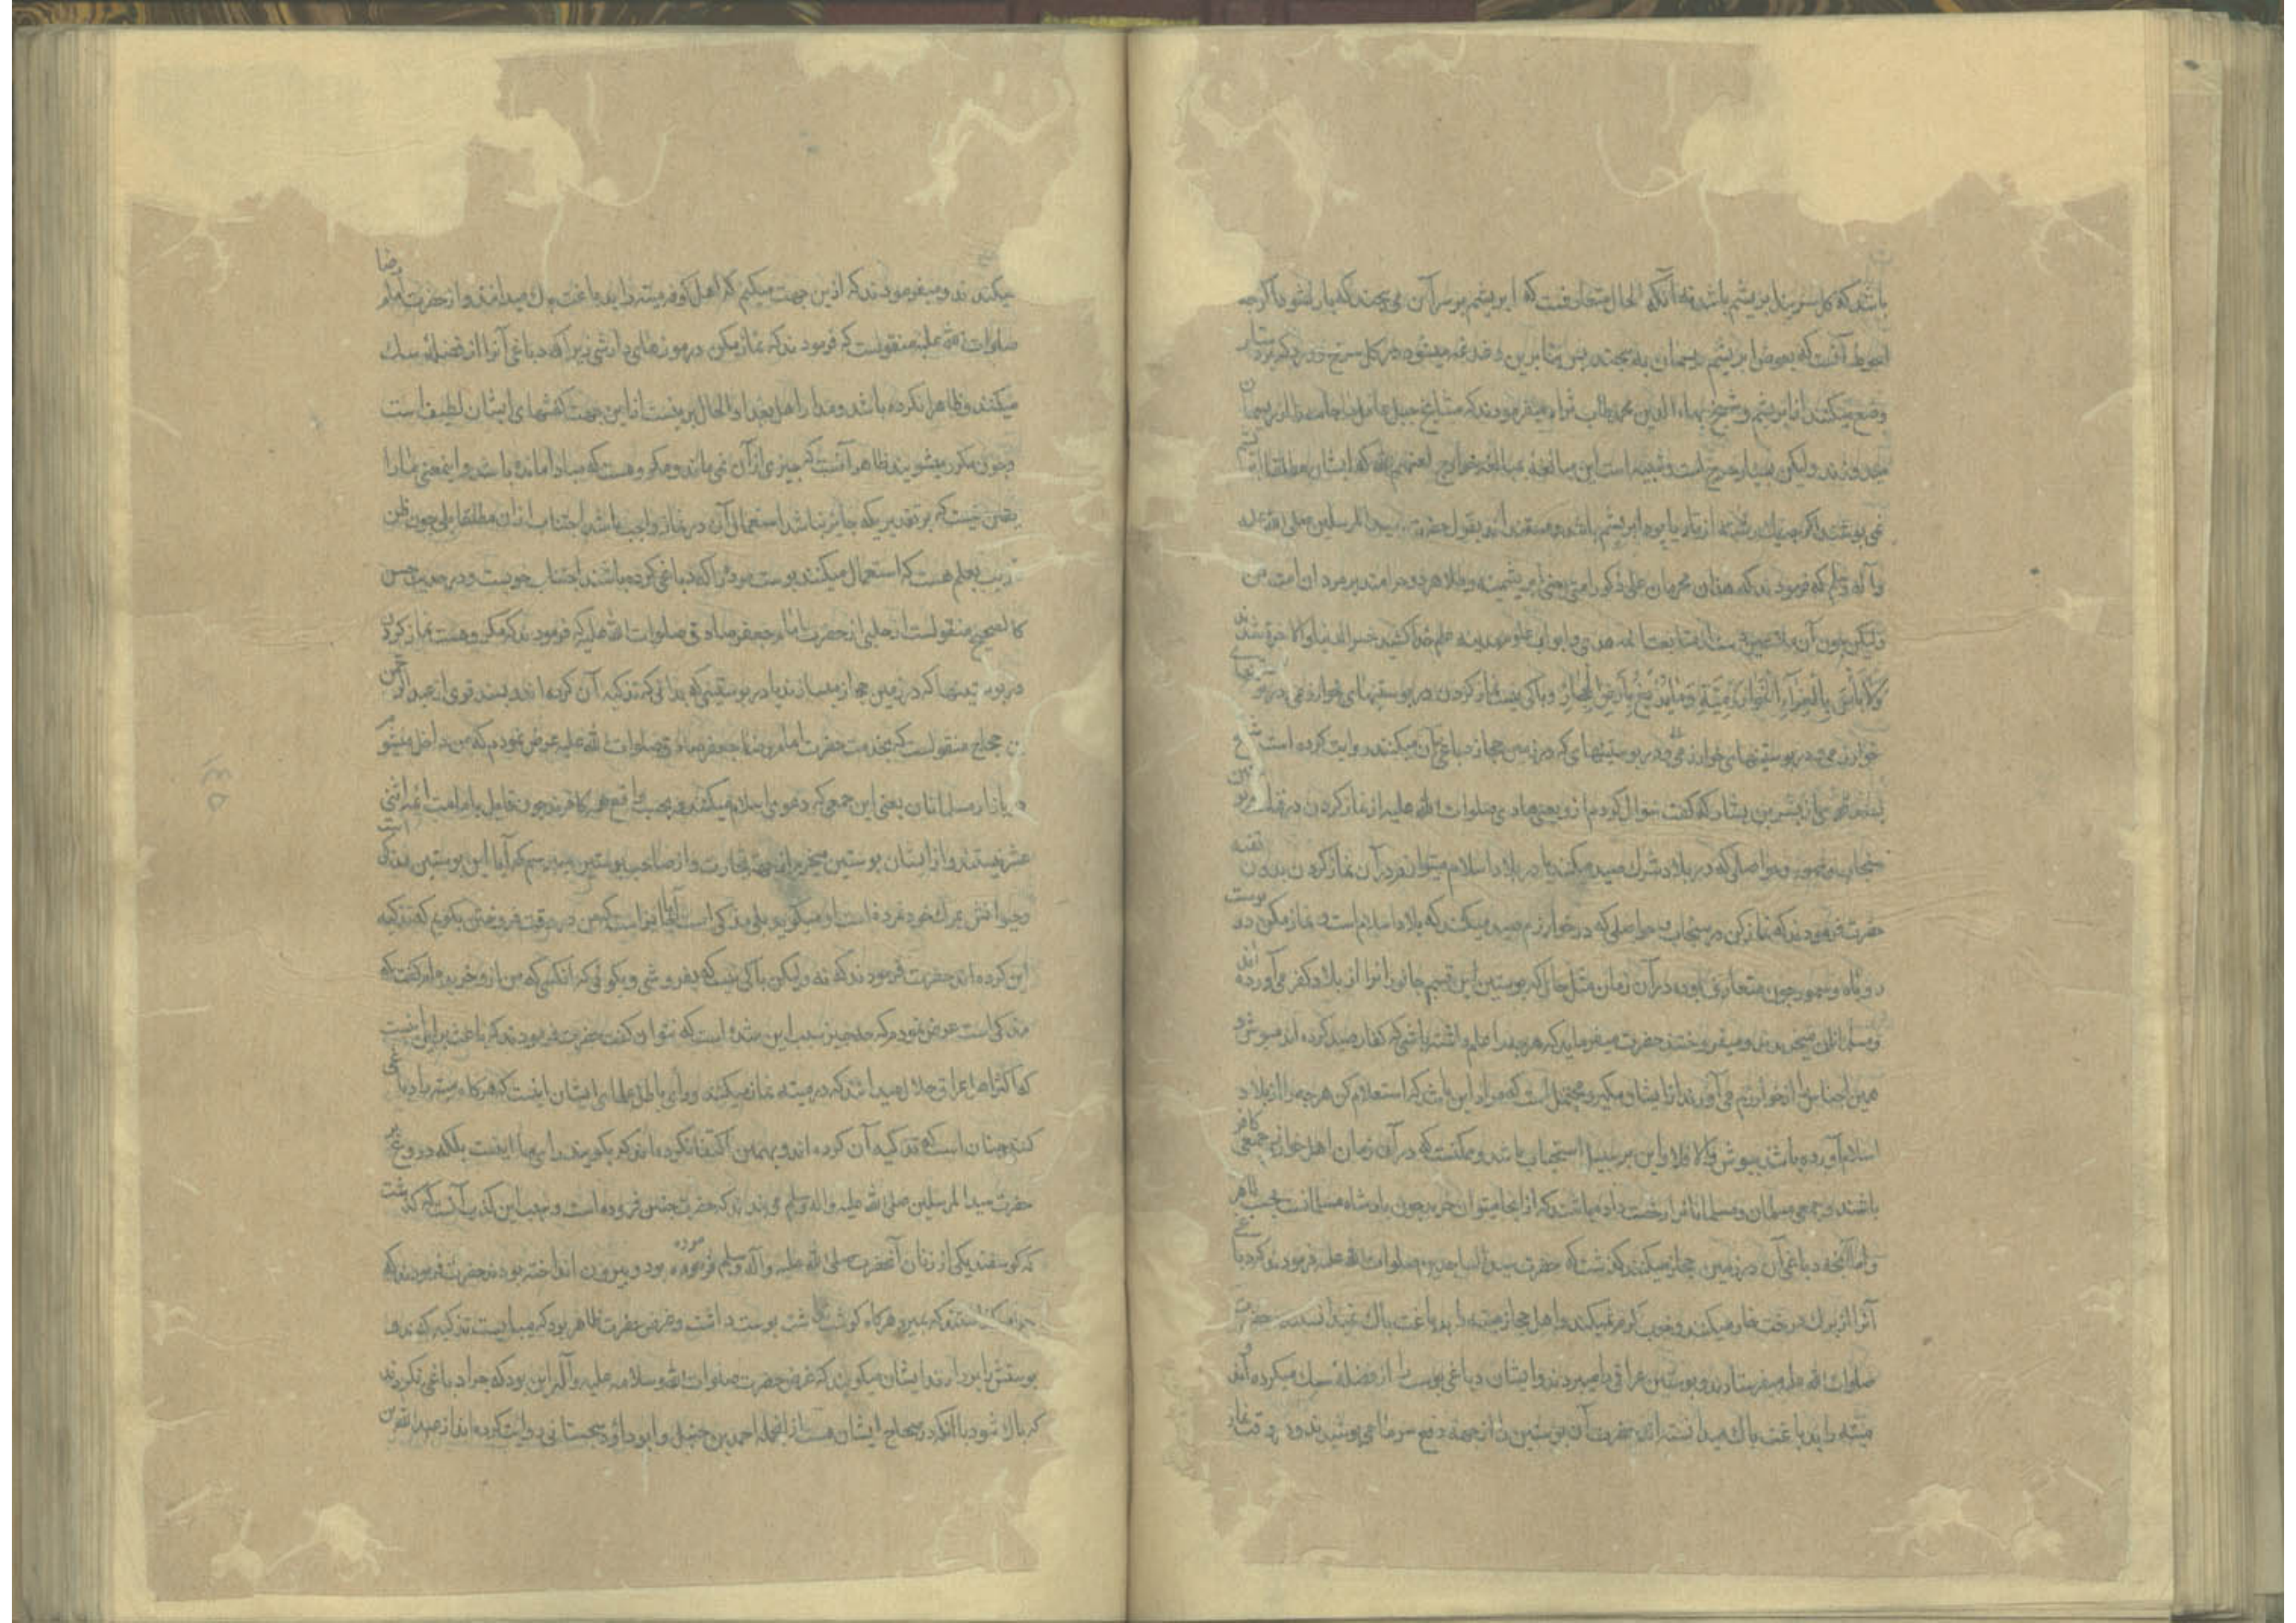 باشد که کل سربند ابریشم باشد نه آنکه الحال متعارفست که ابریشم بر سر آن می پیچند که پاره نشود اگر چه
احوط آنست که بعوض ابریشم ریسمان به پیچند پس بنابرین
وضع میکنند از ابریشم و شیخ بهاء الدین محمد طاب ثراه میفرمودند که مشایخ جبل عامل جامه را از ریسمان
میدوزند و لیکن بسیار حرج است و شبیه است این مبالغه بمبالغه خوارج لعنهم الله که ایشان مطلقا ابریشم
نمی پوشند و اگر چه یک رشته از تار یا پود ابریشم باشد بقول حضرت سید المرسلین صلی الله علیه
و آله و سلم که فرمودند که هذان محرمان علی ذکور امتی یعنی ابریشمینه و طلا هر دو حرامند بر مردان امت من
و لیکن چون آن ملاعین متابعت ائمه هدی و ابواب علوم مدینه علم خدا خسر الدنیا و الآخرة شدند
و خوارزمیة و ما یدبغ بارض الحجاز و باکی نیست نماز کردن در پوستینهای خوارزمی
خوارزمی و در پوستینهای خوارزمی و در پوستینهای که در زمین حجاز دباغی آن میکنند روایت کرده است شیخ
از بشیر بن بشار که گفت سؤال کردم ازو یعنی هادی صلوات الله علیه از نماز کردن در
سنجاب و سمور و حواصلی که در بلاد شرک صید میکنند یا در بلاد اسلام میتوانم در آن نماز کردن بدون تقیه
حضرت فرمودند که نماز کن در سنجاب و حواصلی که در خوارزم صید میکنند که بلاد اسلام است و نماز مکن در پوست
روباه و سمور چون متعارف بوده در آن زمان مثل حال که پوستین این قسم جانورانرا از بلاد کفر می آورده اند
و مسلمانان میخریدند و میفروختند حضرت میفرماید که هر چه را علم داشته باشی که کفار صید کرده اند مپوش و
همین اجناس را از خوارزم می آورند از ایشان مگیر و محتمل است که مراد این باشد که استعلام کن هر چه را از بلاد
اسلام آورده باشند بپوش و الا فلا و این بر سبیل استحباب باشد و ممکنست که در آن زمان اهل خوارزم جمعی کافر
باشند و جمعی مسلمان و مسلمانانرا رخصت داده باشند که از آنجا میتوان خرید چون پادشاه مسلمانست بحسب ظاهر
و اما آنچه دباغی آن در زمین حجاز میکنند گذشت که حضرت سید الساجدین صلوات الله علیه فرمودند که دباغی
آنرا از برک درخت خار میکنند و خوب گرم نمیکند و اهل حجاز میته را بدباغت پاک نمیدانسته حضرت
صلوات الله علیه میفرستادند و پوستین عراقی را میبردند و ایشان دباغی پوست را از فضله سک میکرده اند و
میته را بدباغت پاک میدانسته اند حضرت آن پوستین را از جهة دفع سرما می پوشیدند و در وقت نماز
میکندند و میفرمودند که ازین جهت میکنم که اهل کوفه میته را بدباغت پاک میدانند و از حضرت امام رضا
صلوات الله علیه منقولست که فرمودند که نماز مکن در موزهای دارشی زیرا که دباغی آنرا از فضله سک
میکنند و ظاهرا نکرده باشد و مدار اهل بغداد الحال برینست ازین جهت کفشهای ایشان لطیف است
و چون مکرر میشویند ظاهر آنست که چیزی از آن نمی ماند و مکروهست که مبادا مانده باشد و اینمعنی ما را
یقین نیست که بر تقدیریکه جایز نباشد استعمال آن در نماز واجب باشد اجتناب از آن مطلقا بلی چون ظن
قریب بعلم هست که استعمال میکنند پوست مرده را که دباغی کرده باشند اجتناب خوبست و در حدیث حسن
کالصحیح منقولست از حلبی از حضرت امام جعفر صادق صلوات الله علیه که فرمودند که مکروهست نماز کردن
در پوستینها که در زمین حجاز میسازند یا در پوستینی که بدانی که تذکیه آن کرده اند و بسند قوی از عبد الرحمن
بن حجاج منقولست که بخدمت حضرت امام جعفر صادق صلوات الله علیه عرض نمودم که من داخل میشوم
در بازار مسلمانان یعنی این جمعی که دعوی اسلام میکنند و بحسب واقع همه کافرند چون قایل بامامت ائمه اثنی
عشر نیستند و از ایشان پوستین میخرم از جهة تجارت و از صاحب پوستین میپرسم که آیا این پوستین مذکی است
و حیوانش بمرک خود نمرده است او میگوید بلی مذکی است آیا جایز است که من در وقت فروختن بگویم که تذکیه
این کرده اند حضرت فرمودند که نه و لیکن باکی نیست که بفروشی و بگوئی که آنکسی که من ازو خریده ام گفت که
مذکی است عرض نمودم که چه چیز سبب این شده است که نتوان گفت حضرت فرمودند که باعث برین اینست
که اکثر اهل عراق حلال میدانند که در میته نماز میکنند و رأی باطل علمای ایشان اینست که هرگاه میته را دباغی
کنند چنان است که تذکیه آن کرده اند و بهمین اکتفا نکرده اند که بگویند رای ما اینست بلکه دروغ بر
حضرت سید المرسلین صلی الله علیه و آله و سلم می بندند که حضرت چنین فرموده است و سبب این کذب آنست که گذشت
که گوسفند یکی از زنان آنحضرت صلی الله علیه و آله و سلم مرده بود و بیرون انداخته بودند حضرت فرمودند که
چرا گذاشتند که بمیرد و هرگاه گوشت نداشت پوست داشت و غرض حضرت ظاهر بود که میبایست تذکیه کنند و
پوستش را بردارند و ایشان میگویند که غرض حضرت صلوات الله و سلامه علیه و آله این بود که چرا دباغی نکردند
که پاک شود با آنکه در صحاح ایشان هست از آنجمله احمد بن حنبل و ابو داؤد سجستانی روایت کرده اند از عبد الله بن